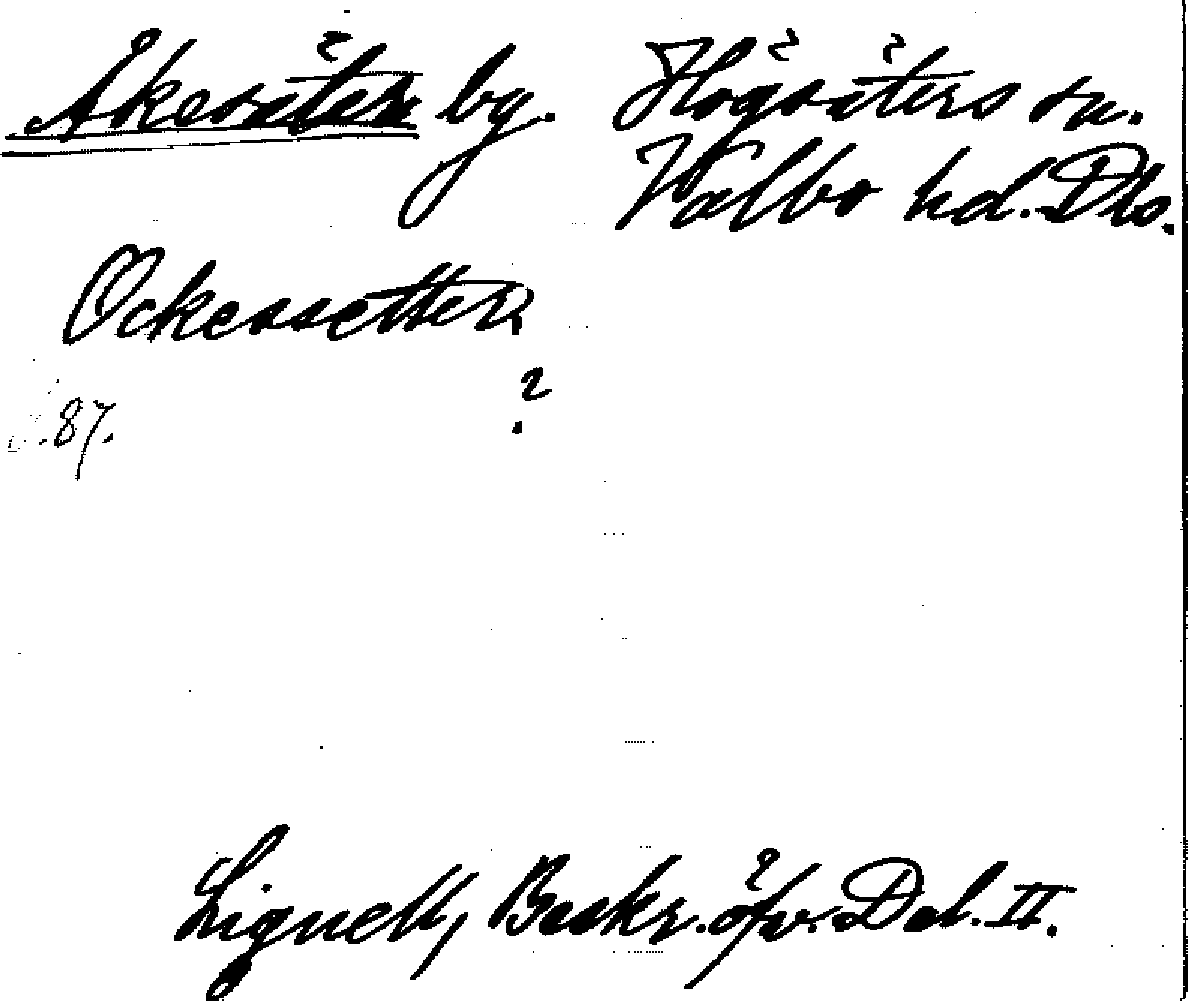 Åkesäter by. Högsäters sn.
Valbo hd. Dls.
Ockessetter
?
S. 87.
Lignell, Beskr. öfv. Dal. II.